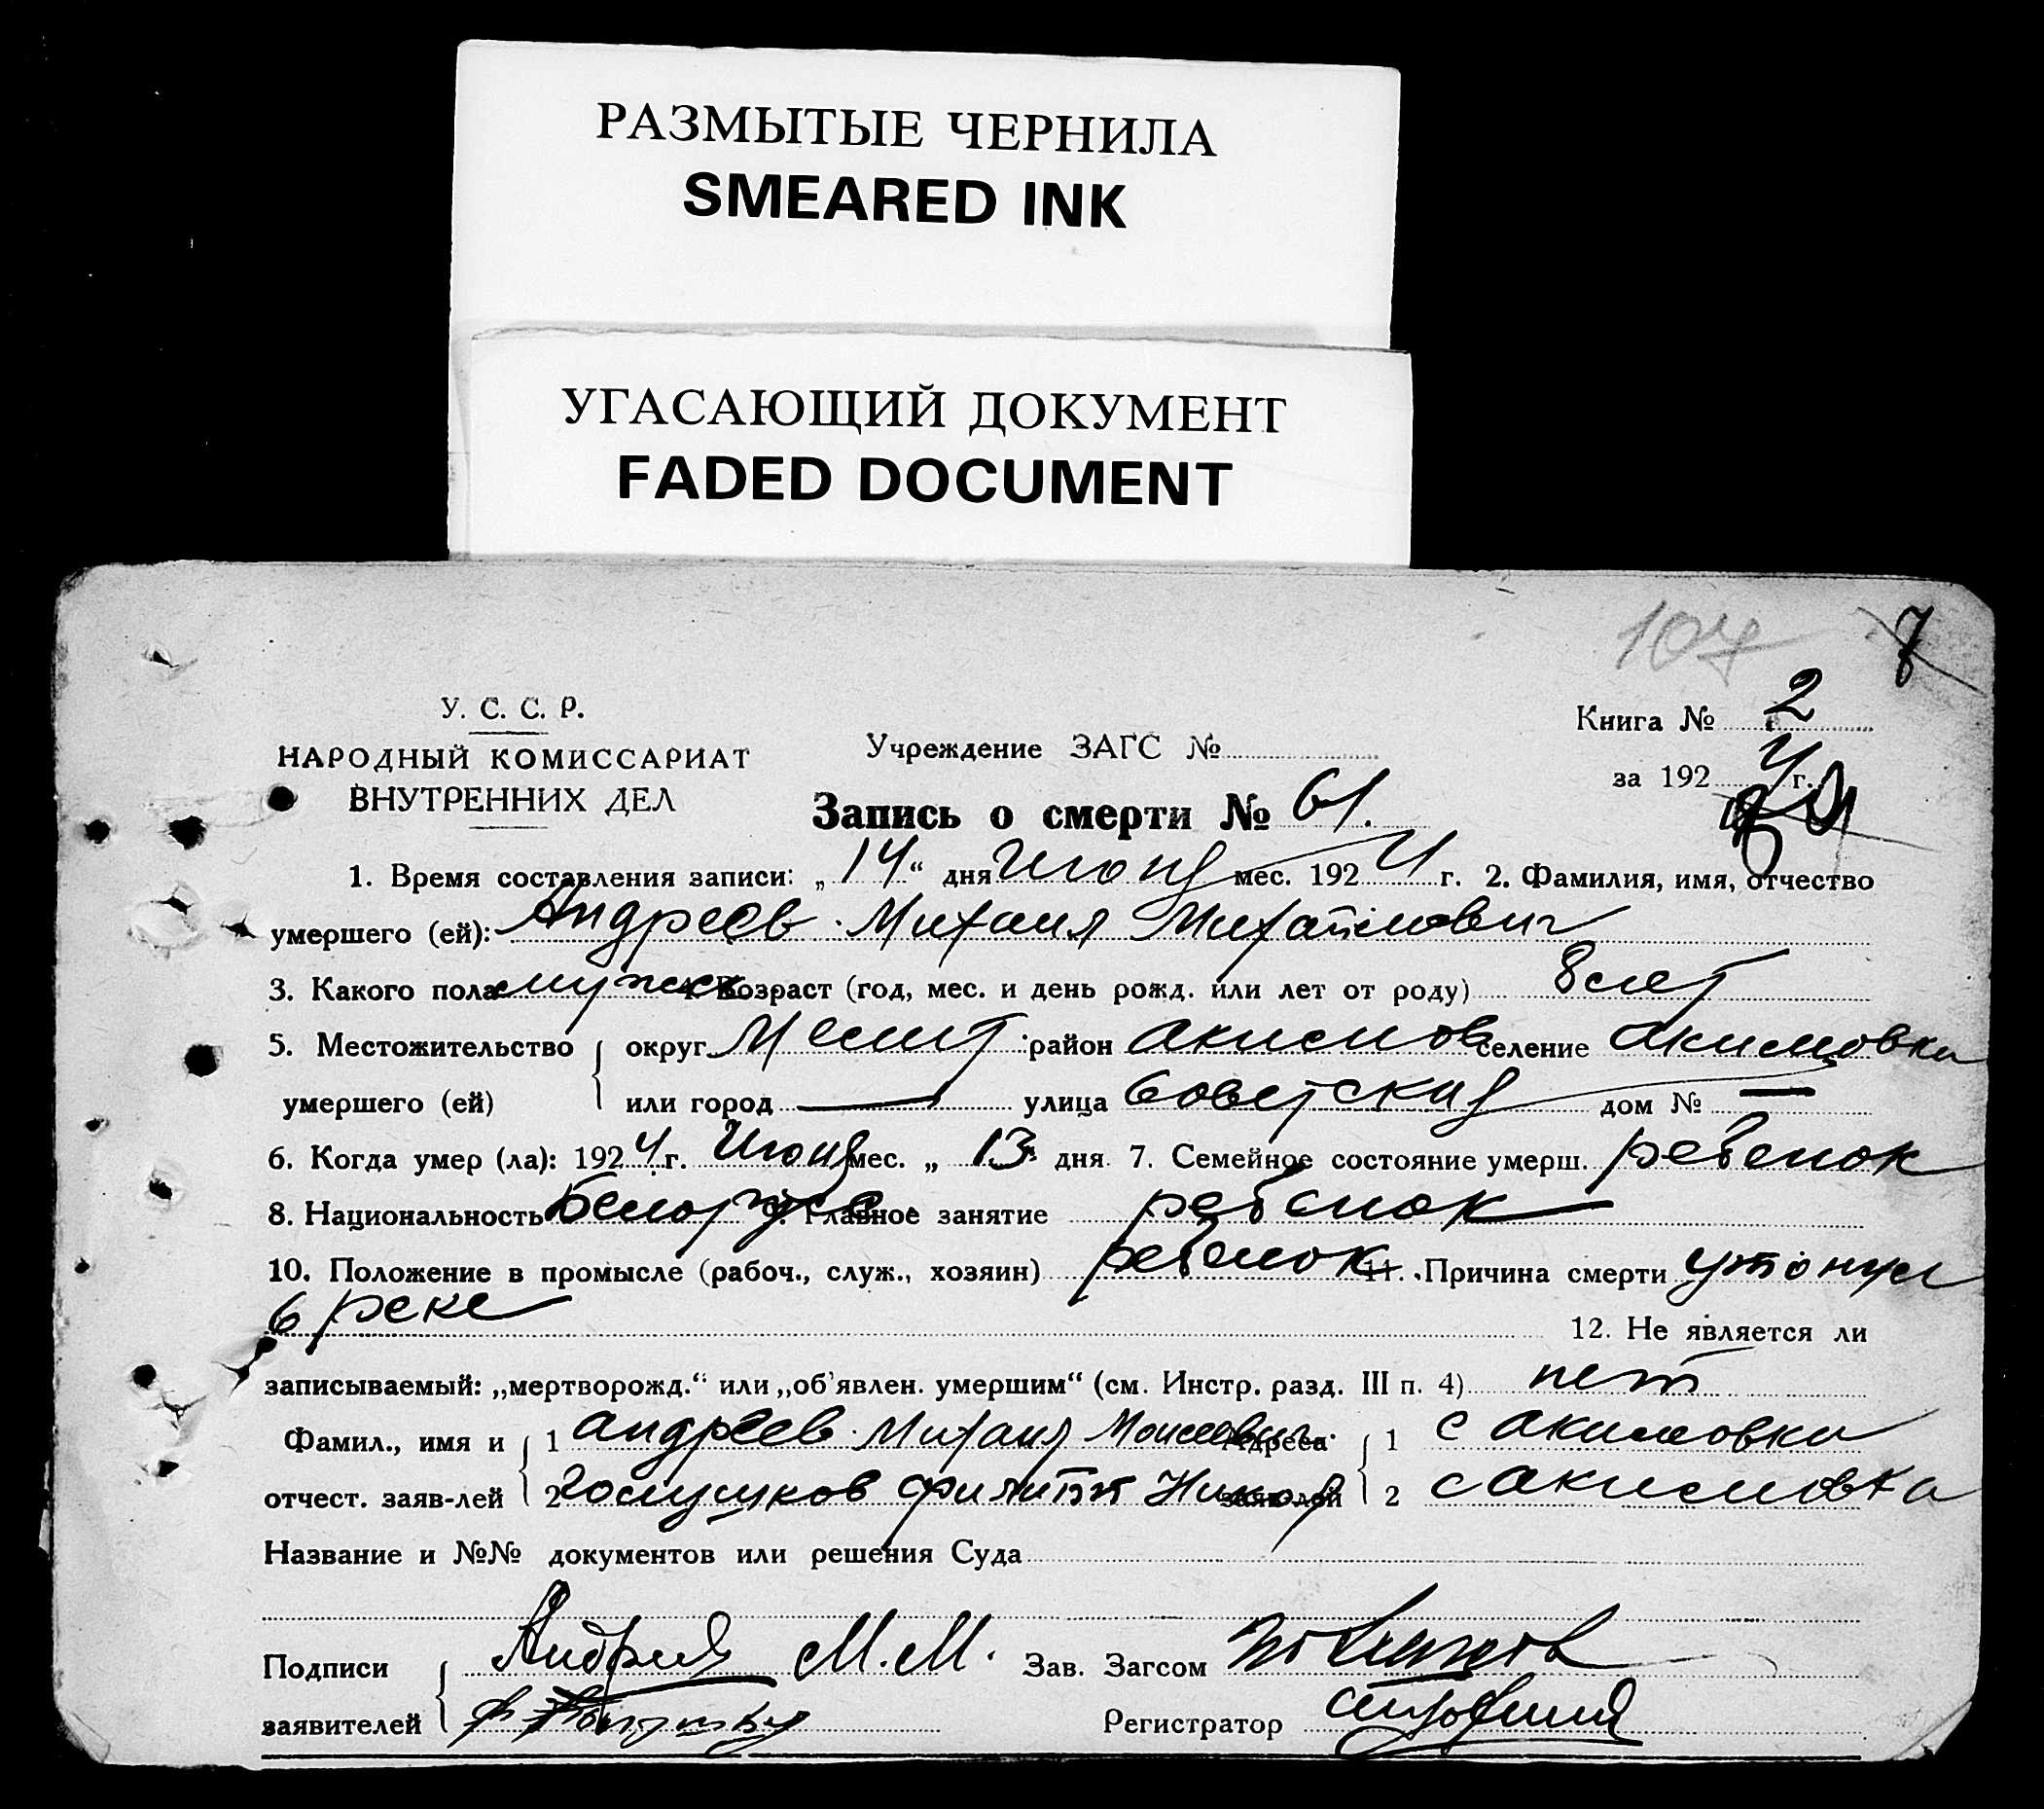 РАЗМЫТЫЕ ЧЕРНИЛА
SMEARED INK
УГАСАЮЩИЙ ДОКУМЕНТ
FADED DOCUMENT
107 7
У. С. С. Р.
НАРОДНЫЙ КОМИССАРИАТ
ВНУТРЕННИХ ДЕЛ
Учреждение ЗАГС №
Книга № 2
за 1924 г.
Запись о смерти № 61.
1. Время составления записи: „14“ дня Июня мес. 1924 г. 2. Фамилия, имя, отчество
умершего (ей): Андреев Михаил Михайлович
3. Какого пола мужск 4. Возраст (год, мес. и день рожд. или лет от роду) 8 лет
5. Местожительство округ Мелит район Акимов селение Акимовка
умершего (ей) или город — улица Советская дом № —
6. Когда умер (ла): 1924 г. Июня мес. „13“ дня 7. Семейное состояние умерш. ребенок
8. Национальность Белорусс 9. Главное занятие ребенок
10. Положение в промысле (рабоч., служ., хозяин) ребенок 11. Причина смерти утонул
в реке 12. Не является ли
записываемый: „мертворожд.“ или „об'явлен. умершим“ (см. Инстр. разд. III п. 4) нет
Фамил., имя и 1 Андреев Михаил Моисеевич Адреса 1 с Акимовка
отчест. заяв-лей 2 Филипп заявлей 2 с Акимовка
Название и №№ документов или решения Суда
Подписи М.М. Зав. Загсом
заявителей Регистратор